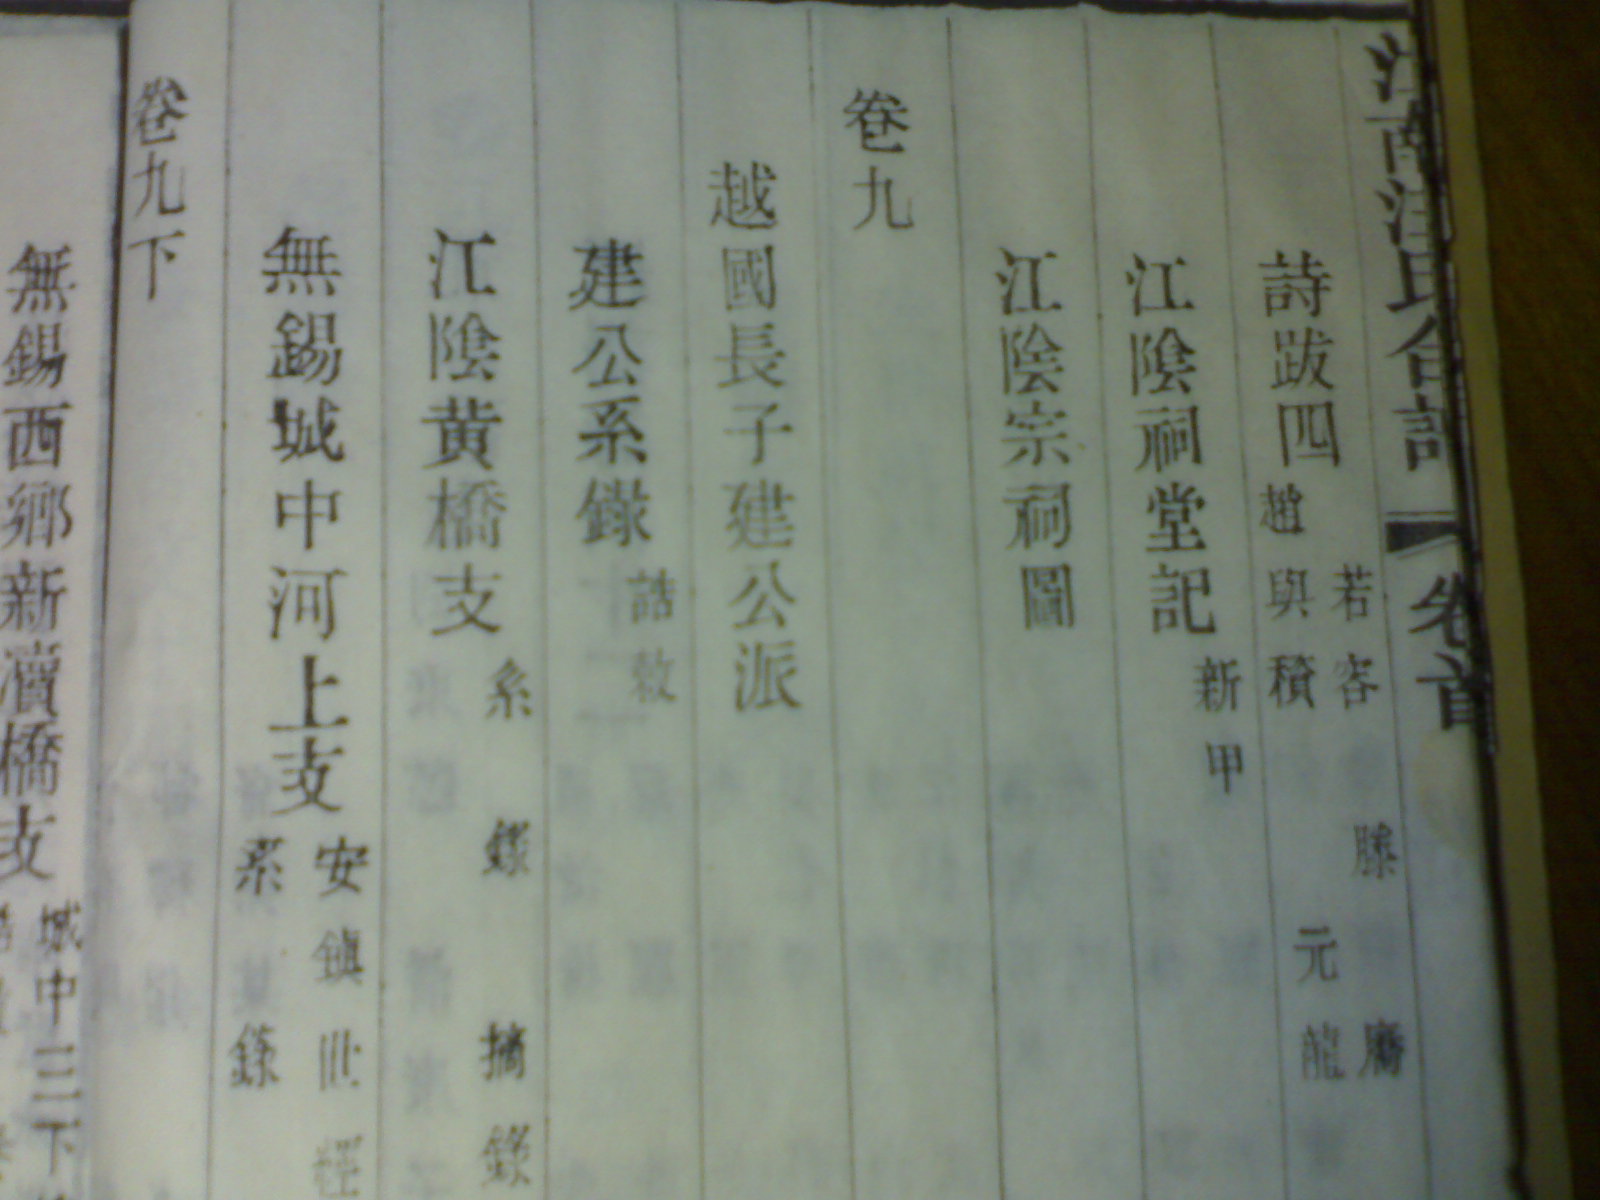 江南汪氏合譜 卷首
詩跋四 若容 滕 鷹
趙 與積 元龍
江陰祠堂記 新甲
江陰宗祠圖
卷九
越國長子建公派
建公系錄 誥敕
江陰黄橋支 系錄 摘錄
無錫城中河上支 安鎮世
系錄
卷九下
無錫西鄉新瀆橋支 城中三下